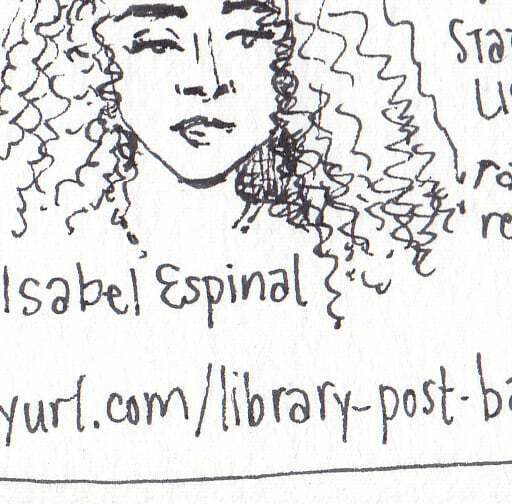 Isabel Espinal
yurl.com/library-post-ba